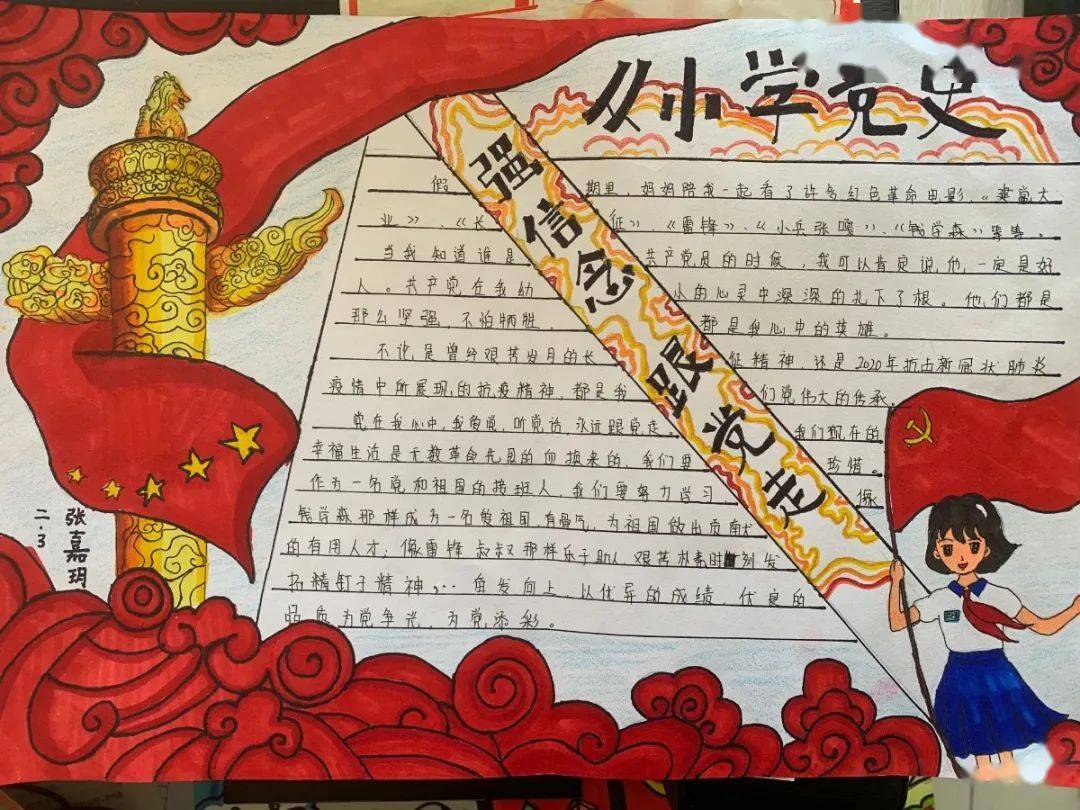 从小学党史
强信念跟党走
假期里，妈妈陪我一起看了许多红色革命电影，《建党大
业》、《长征》《雷锋》、《小兵张嘎》、《钱学森》等等。
当我知道谁是共产党员的时候，我可以肯定说他一定是好
人。共产党在我幼小的心灵中深深的扎下了根。他们都是
那么坚强，不怕牺牲，都是我心中的英雄。
不论是曾经艰苦岁月的长征精神，还是2020年抗击新冠状肺炎
疫情中所展现的抗疫精神，都是我们党伟大的传承。
党在我心中，我爱党，听党话，永远跟党走。我们现在的
幸福生活是无数革命先烈的血换来的，我们要珍惜。
作为一名党和祖国的接班人，我们要努力学习，像
钱学森那样成为一名爱祖国，有骨气，为祖国做出贡献大
的有用人才；像雷锋叔叔那样乐于助人，艰苦朴素时刻发
扬钉子精神，…奋发向上，以优异的成绩，优良的
品质为党争光，为党添彩。
张嘉玥
二.3